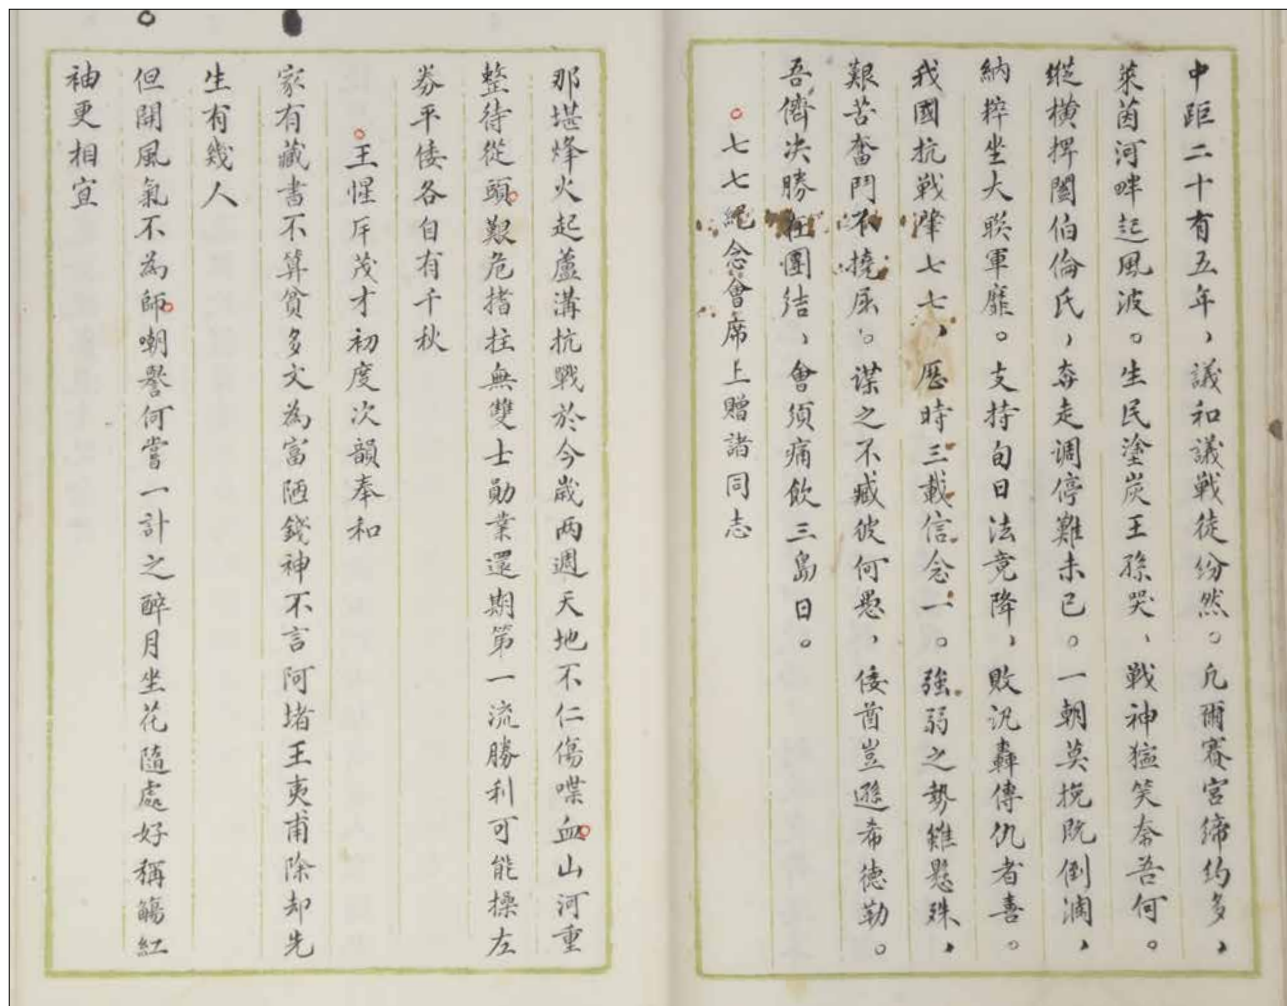 中距二十有五年，議和議戰徒紛然。凡爾賽宮締約多，
萊茵河畔起風波。生民塗炭王孫哭、戰神獰笑奈吾何。
縱橫捭闔伯倫氏，奔走调停難未已。一朝莫挽既倒瀾，
納粹坐大联軍靡。支持旬日法竟降，敗汛轟傳仇者喜。
我國抗戰肇七七，歷時三載信念一。強弱之勢雖懸殊，
艱苦奮鬥不撓屈。谋之不臧彼何愚，倭酋豈遜希德勒。
吾儕决勝在團结、會須痛飲三島日。
七七紀念會席上贈諸同志
那堪烽火起蘆溝抗戰於今歲两週天地不仁傷喋血山河重
整待從頭艱危搘拄無雙士勛業還期第一流勝利可能操左
券平倭各自有千秋
王惺斥茂才初度次韻奉和
家有藏書不算貧多文為富陋錢神不言阿堵王夷甫除却先
生有幾人
但開風氣不為師嘲譽何嘗一計之醉月坐花隨處好稱觴紅
袖更相宜